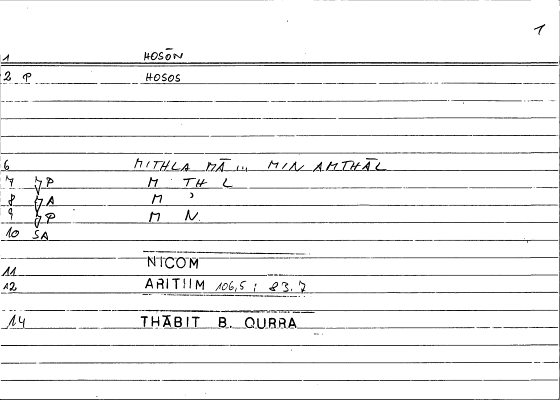 1
1 HOSŌN
2 P HOSOS
6 MITHLA MĀ ... MIN AMTHĀL
7 P M TH L
8 A M ʾ
9 P M N
10 SA
11 NICOM
12 ARITIIM 106,5 ; 83.7
14 THĀBIT B. QURRA